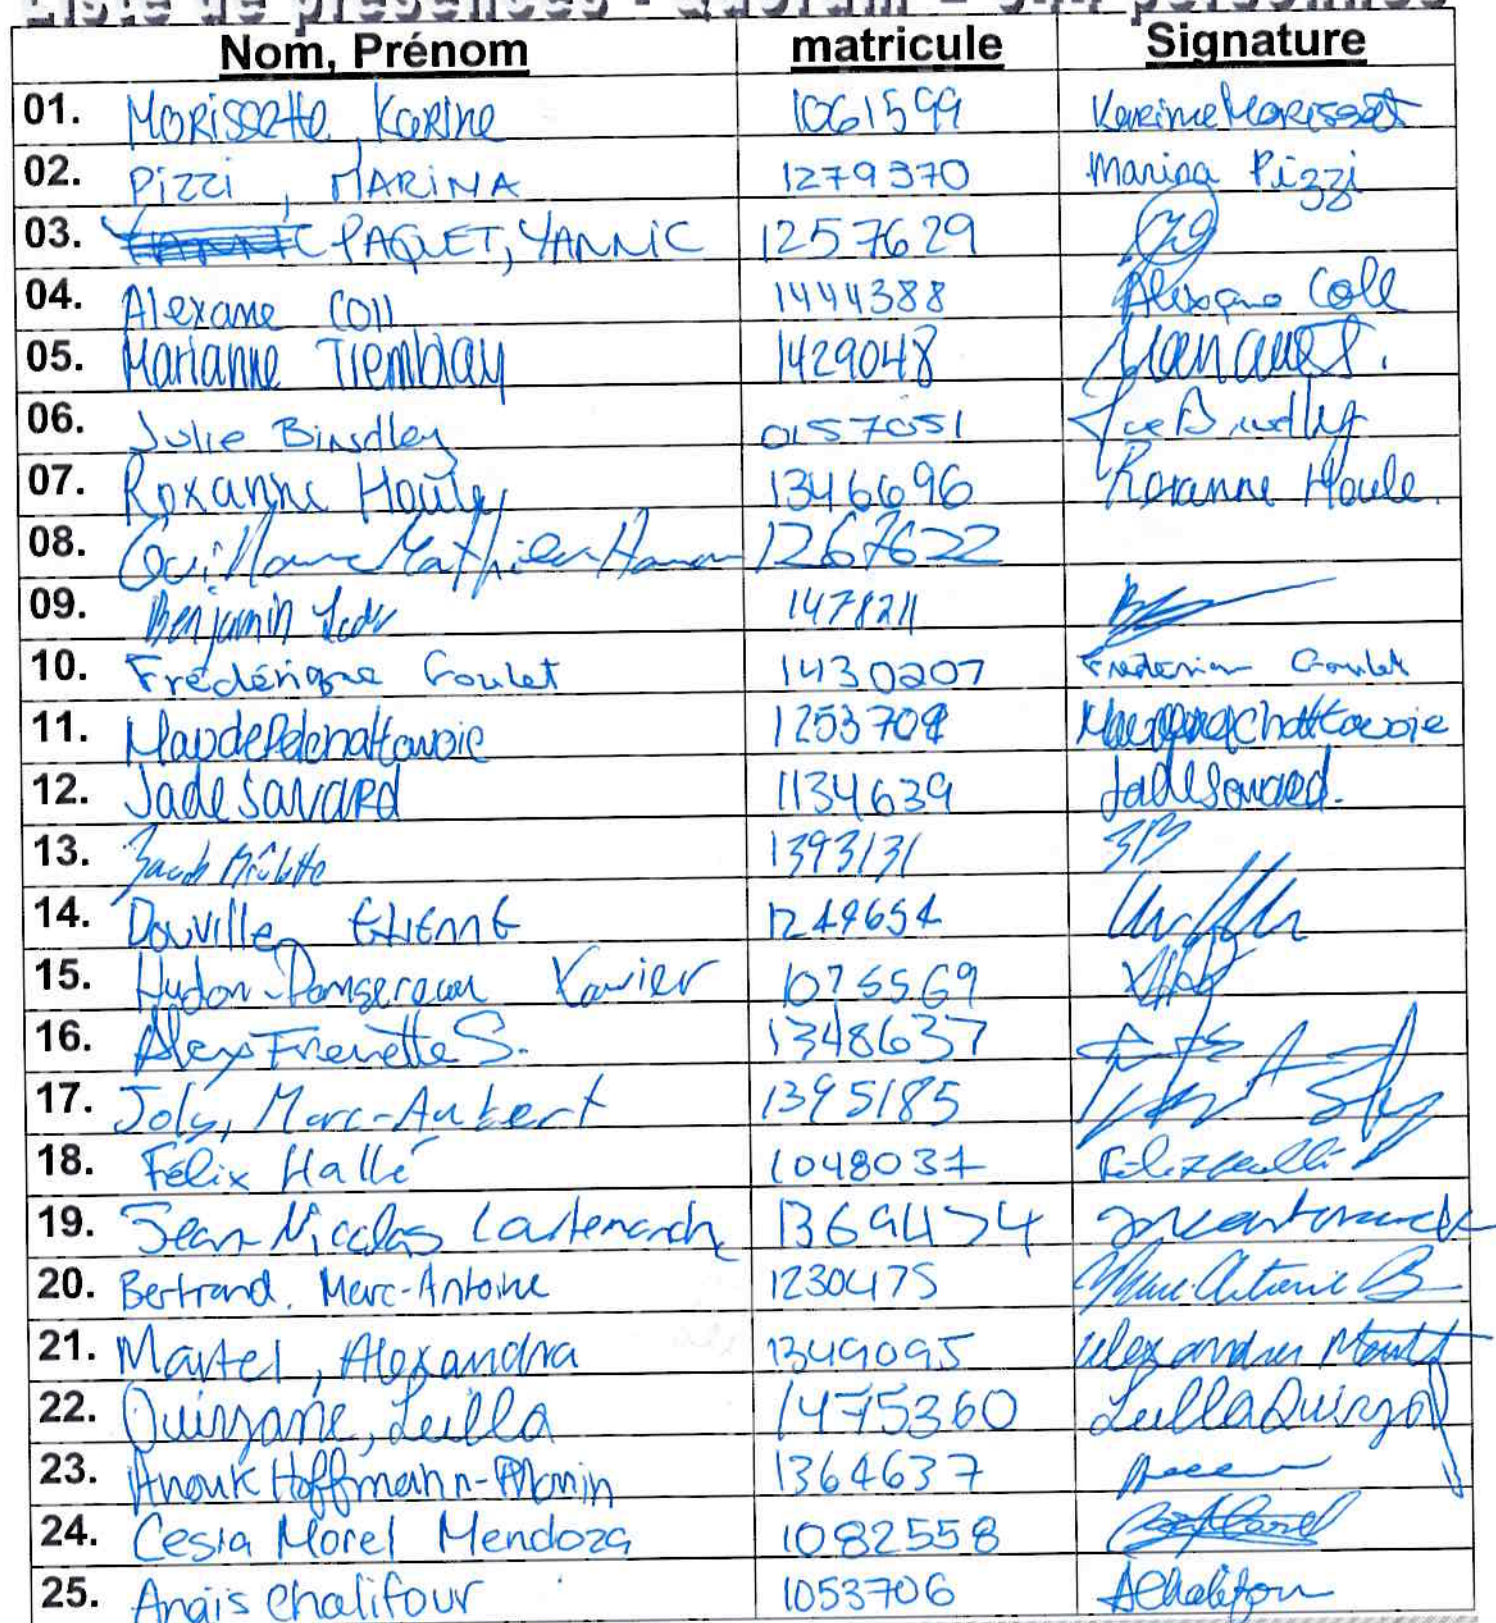 Liste de présences - Quorum - 344 personnes
Nom, Prénom matricule Signature
01. Morissette, Karine 1061599 Karine Morissette
02. Pizzi, MARINA 1279370 Marina Pizzi
03. PAQUET, YANNIC 1257629
04. Alexane Coll 1444388 Alexane Coll
05. Marianne Tremblay 1429048 Marianne T.
06. Julie Bindley 0157051 Julie Bindley
07. Roxanne Houle 1346696 Roxanne Houle.
08. Guillaume Mathieu 1267622
09. Benjamin 1478211
10. Frédérique Goulet 1430207 Frederique Goulet
11. 1253708
12. Jade SavaRd 1134639 Jade Savard.
13. Jacob 1393131 JB
14. Douville, Etienne 1249654
15. Hudon-Dansereau Xavier 1075569
16. Alex Frenette S. 1348637
17. Joly, Marc-Aubert 1395185
18. Félix Hallé 1048037 Félix Hallé
19. Jean-Nicolas 1369474
20. Bertrand, Marc-Antoine 1230475 Marc-Antoine B
21. Martel, Alexandra 1349095 Alexandra Martel
22. Ouizzane, Leilla 1475360 Leilla Ouizzane
23. Anouk Hoffmann- 1364637
24. Cesia Morel Mendoza 1082558
25. Anais Chalifour 1053706 AChalifour